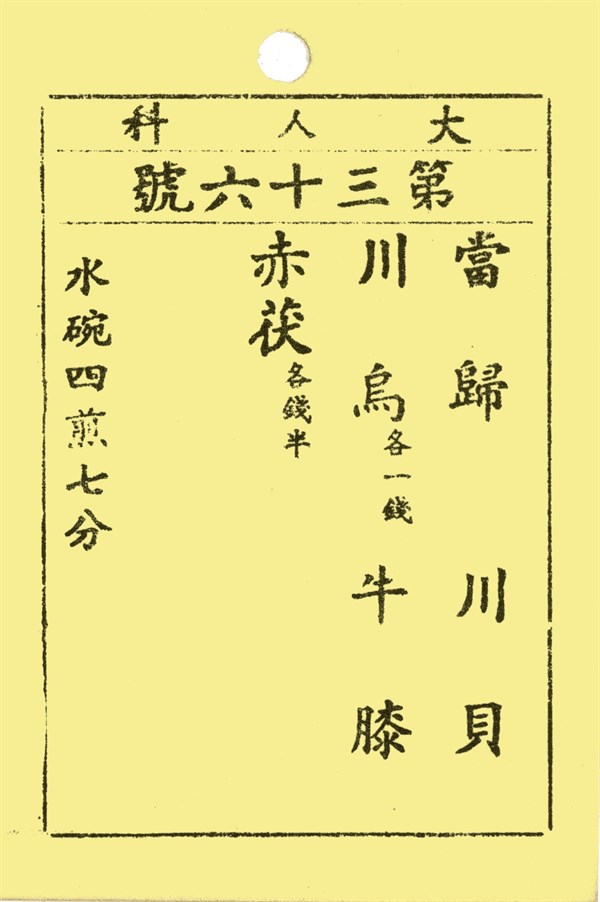 大人科
第三十六號
當歸 川貝
川烏各一錢 牛膝
赤茯各錢半
水碗四煎七分